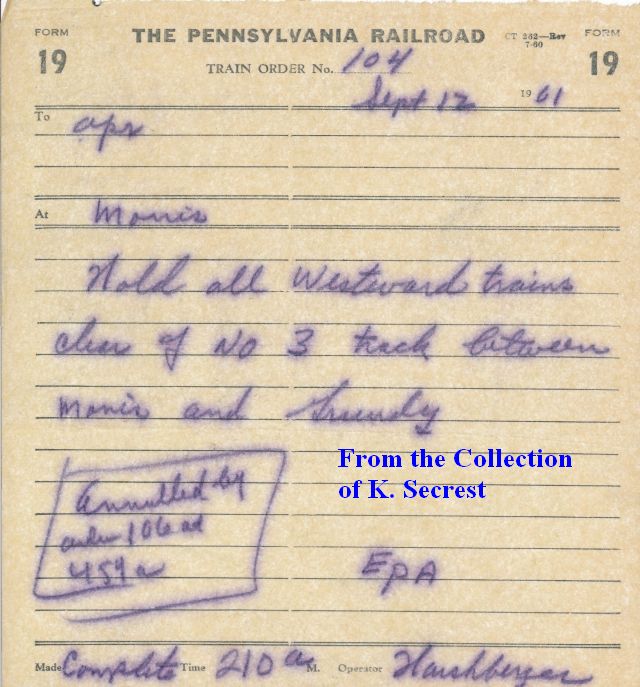 FORM 19
THE PENNSYLVANIA RAILROAD
CT 262—Rev 7-60
FORM 19
TRAIN ORDER No. 104
Sept 12 1961
To opr
At Morris
Hold all Westward trains
clear of No 3 track between
Morris and Grundy
Annulled by
order 106 ad
459a
From the Collection
of K. Secrest
EPA
Made Complete Time 210 a M. Operator Harshberger